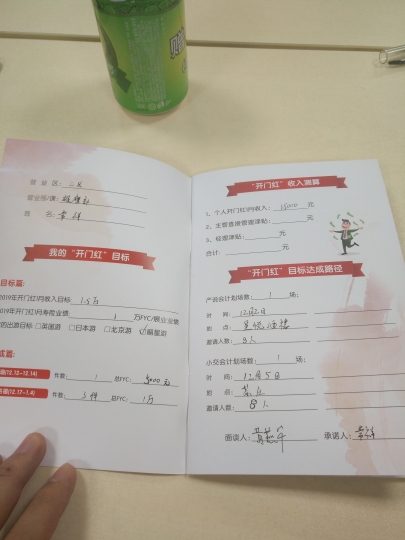 营 业 区: 二区
营业部/课:
姓 名:
我的“开门红”目标
目标篇:
2019年开门红/月收入目标: 1.5万
2019年开门红/月寿险业绩 3 万FYC/展业业绩
的出游目标 □英国游 □日本游 □北京游 ☑
成篇:
(12.12-12.14) 件数: 1 总FYC: 5000元
(12.17-1.4) 件数: 3件 总FYC: 1万
“开门红”收入测算
1、个人开门红/月收入: 15000 元
2、主管直接管理津贴: 元
3、经理津贴: 元
合计: 元
“开门红”目标达成路径
产说会计划场数: 1 场:
时 间: 12月2日
地 点: 酒楼
邀请人数: 3人
小交会计划场数: 1 场:
时 间: 12月5日
地 点:
邀请人数: 8人
面谈人: 承诺人: